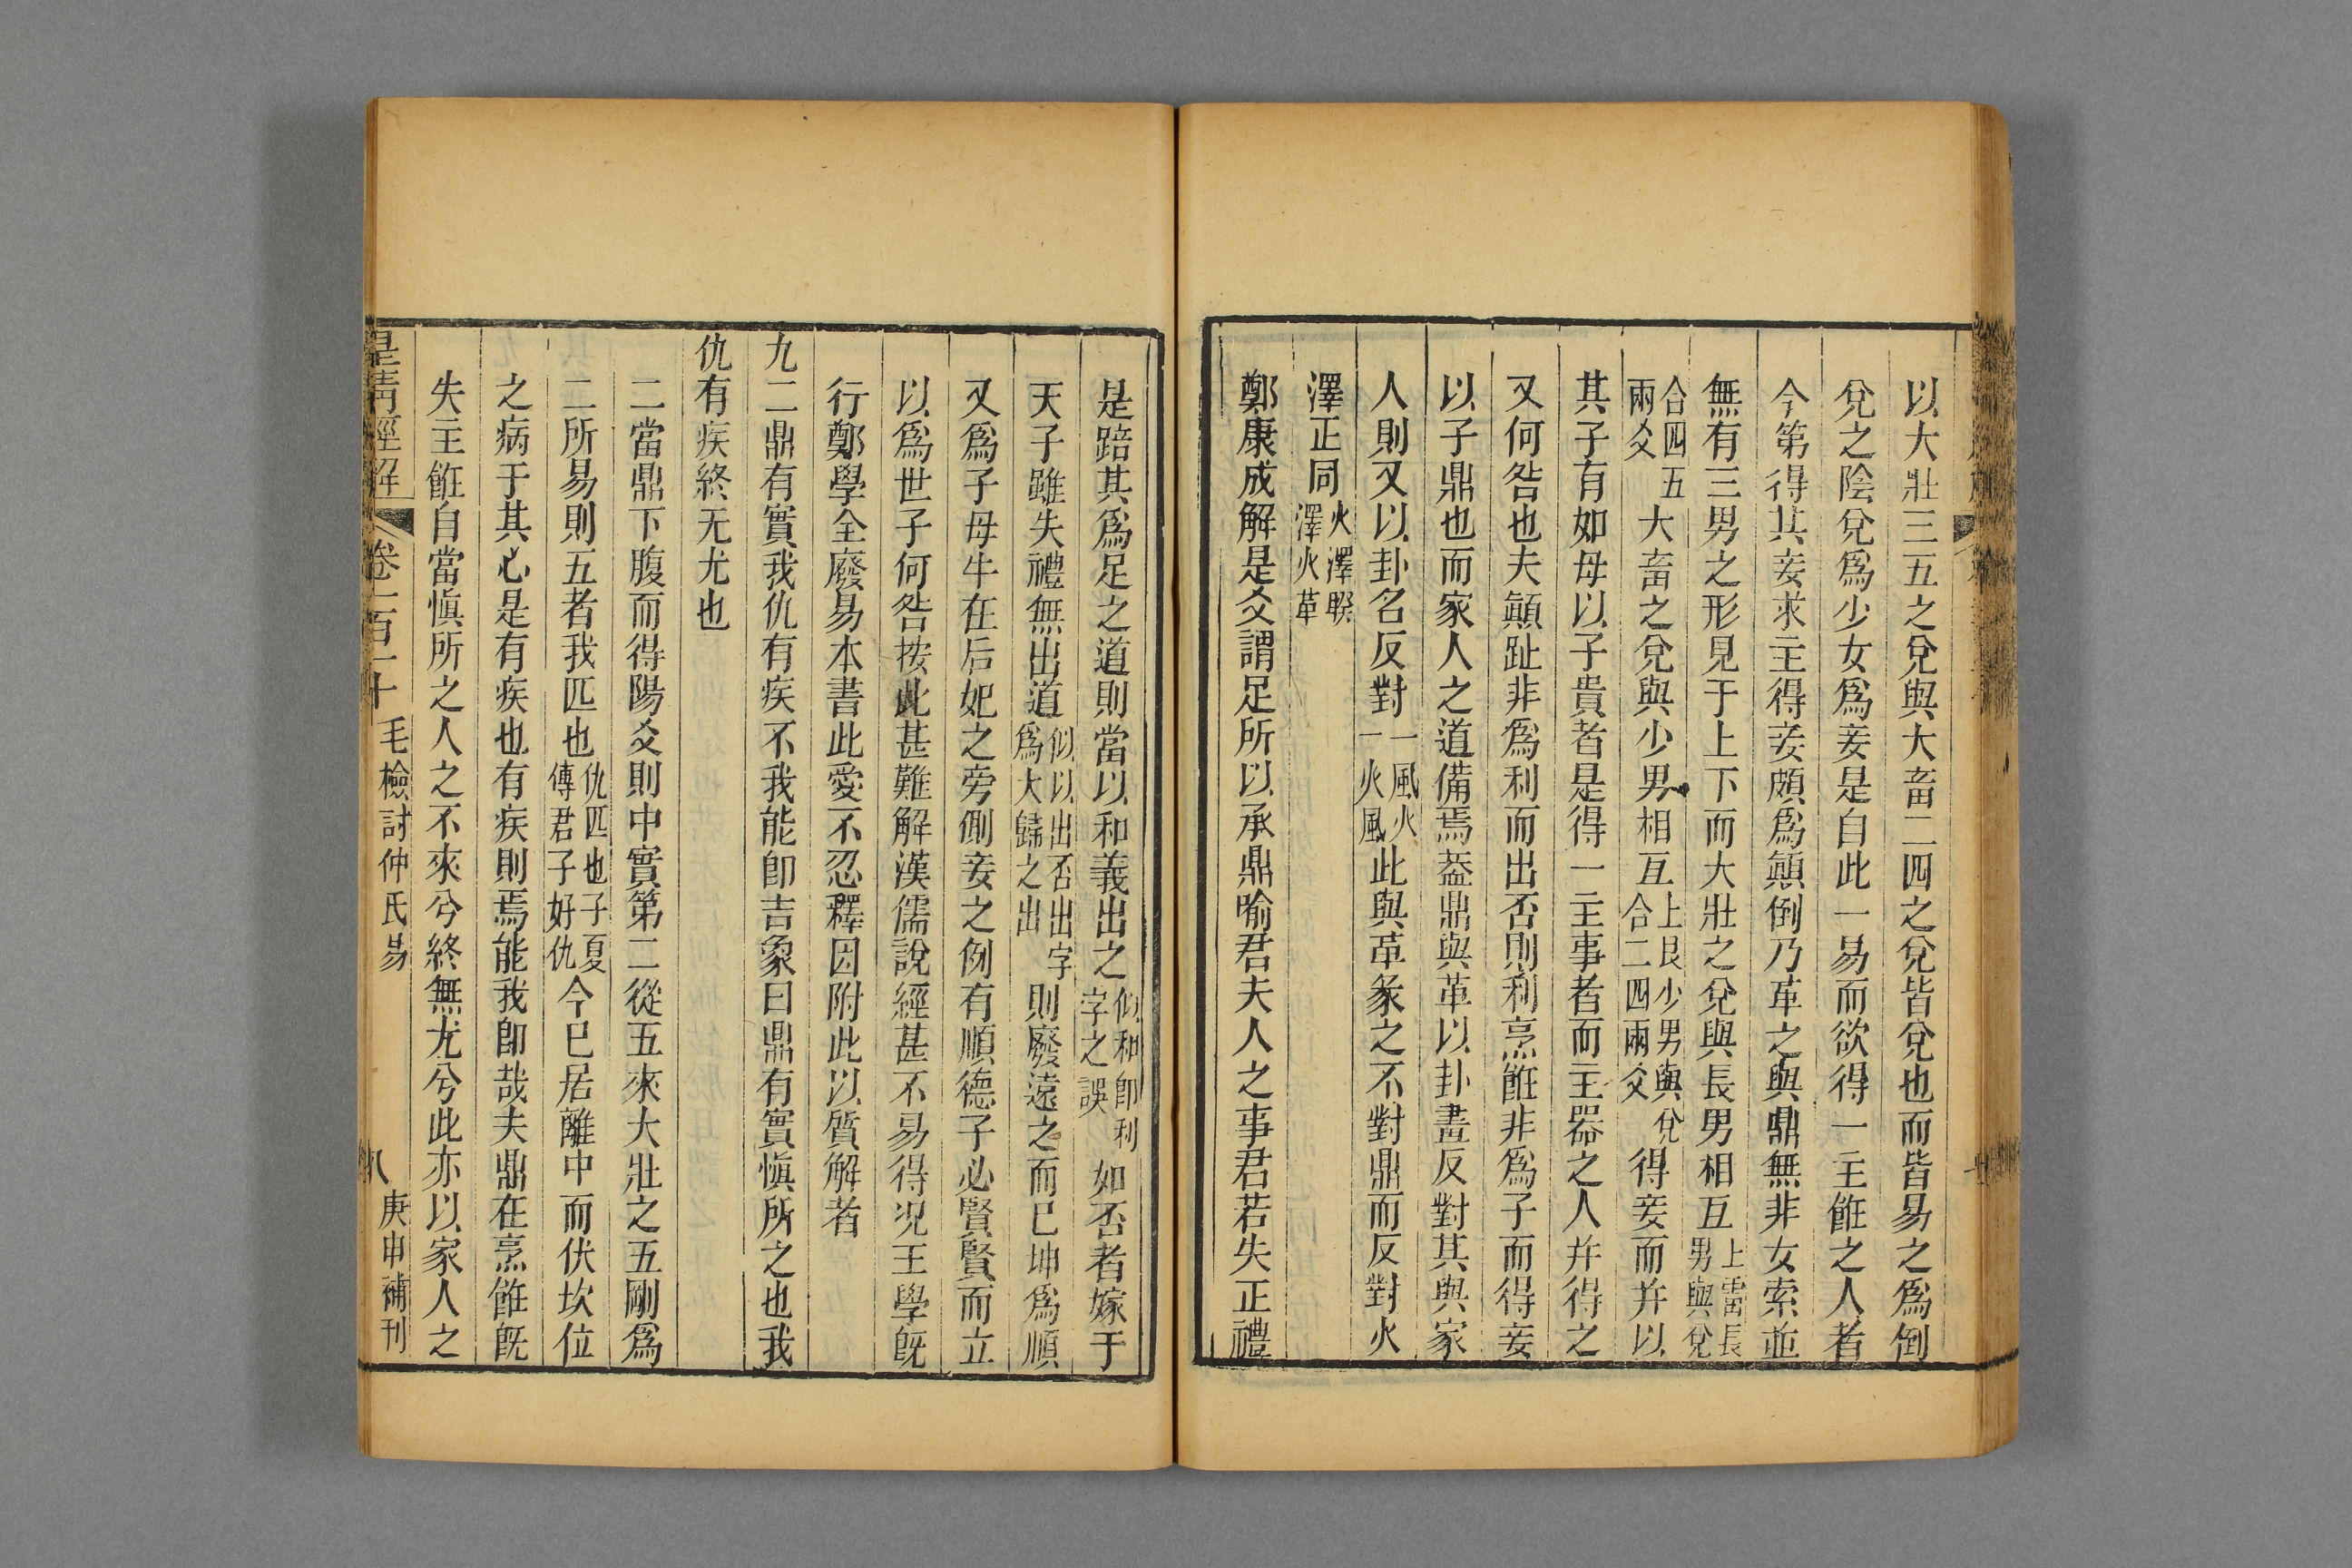 以大壯三五之兌與大畜二四之兌皆兌也而皆易之爲倒
兌之陰兌爲少女爲妾是自此一易而欲得一主餁之人者
今第得其妾求主得妾頗爲顚倒乃革之與鼎無非女索並
無有三男之形見于上下而大壯之兌與長男相互上雷長男與兌
合四五兩爻大畜之兌與少男相互上艮少男與兌合二四兩爻得妾而并以
其子有如母以子貴者是得一主事者而主器之人并得之
又何咎也夫顚趾非爲利而出否則利烹餁非爲子而得妾
以子鼎也而家人之道備焉葢鼎與革以卦畫反對其與家
人則又以卦名反對一風火一火風此與革彖之不對鼎而反對火
澤正同火澤睽澤火革
鄭康成解是爻謂足所以承鼎喻君夫人之事君若失正禮
是踣其爲足之道則當以和義出之似和卽利字之誤如否者嫁于
天子雖失禮無出道似以出否出字爲大歸之出則廢遠之而已坤爲順
又爲子母牛在后妃之旁側妾之例有順德子必賢賢而立
以爲世子何咎按此甚難解漢儒說經甚不易得况王學旣
行鄭學全廢易本書此愛不忍釋因附此以質解者
九二鼎有實我仇有疾不我能卽吉象曰鼎有實愼所之也我
仇有疾終无尤也
二當鼎下腹而得陽爻則中實第二從五來大壯之五剛爲
二所易則五者我匹也仇匹也子夏傳君子好仇今已居離中而伏坎位
之病于其心是有疾也有疾則焉能我卽哉夫鼎在烹餁旣
失主餁自當愼所之人之不來兮終無尤兮此亦以家人之
皇清經解 卷一百一十 毛檢討仲氏易 八 庚申補刊